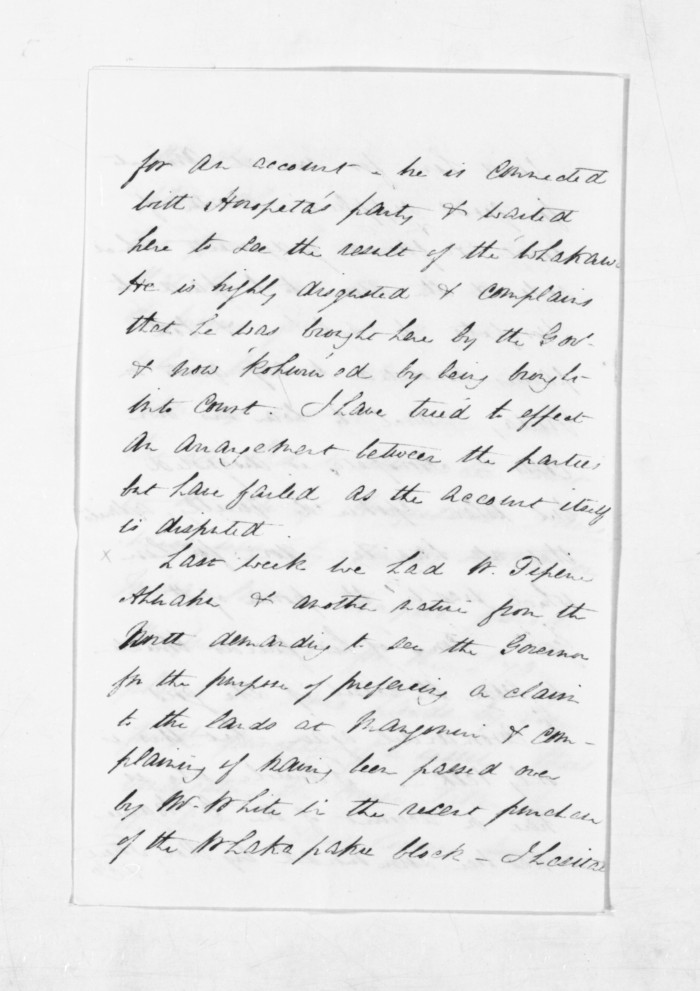 for an account – he is connected
with Horopeta's party & waited
here to see the result of the Whakawa
He is highly disgusted & complains
that he was brought here by the Gov.
& now 'Kohuru'ed by being brought
into Court. I have tried to effect
an arrangement between the parties
but have failed as the account itself
is disputed.
x Last week we had W. Tipene
& another native from the
North demanding to see the Governor
for the purpose of preferring a claim
to the lands at Mangonui & com-
plaining of having been passed over
by Mr. White in the recent purchase
of the block – I